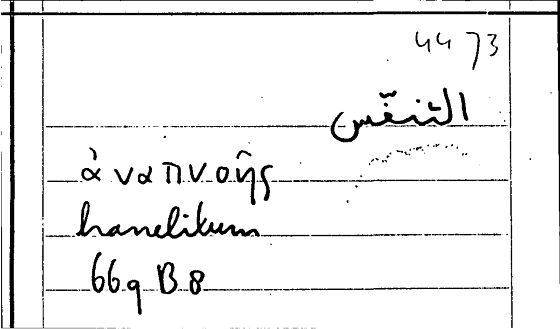 44 73
التنفّس
ἀναπνοῆς
hanelitum
66a B 8